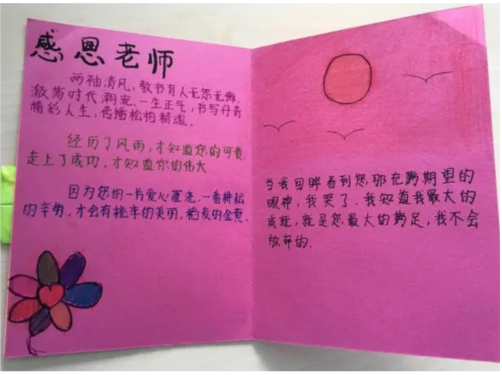 感恩老师
两袖清风，教书育人无怨无悔，
激荡时代潮流，一生正气，书写丹青
精彩人生，传播
经历了风雨，才知道您的可贵，
走上了成功，才知道你的伟大
因为您的一片爱心灌浇，一番耕耘
的辛勤，才会有桃李的美丽，稻麦的金黄。
当我回眸看到您那充满期望的
眼神，我哭了，我知道我最大的
成就，就是您最大的满足，我不会
放弃的.